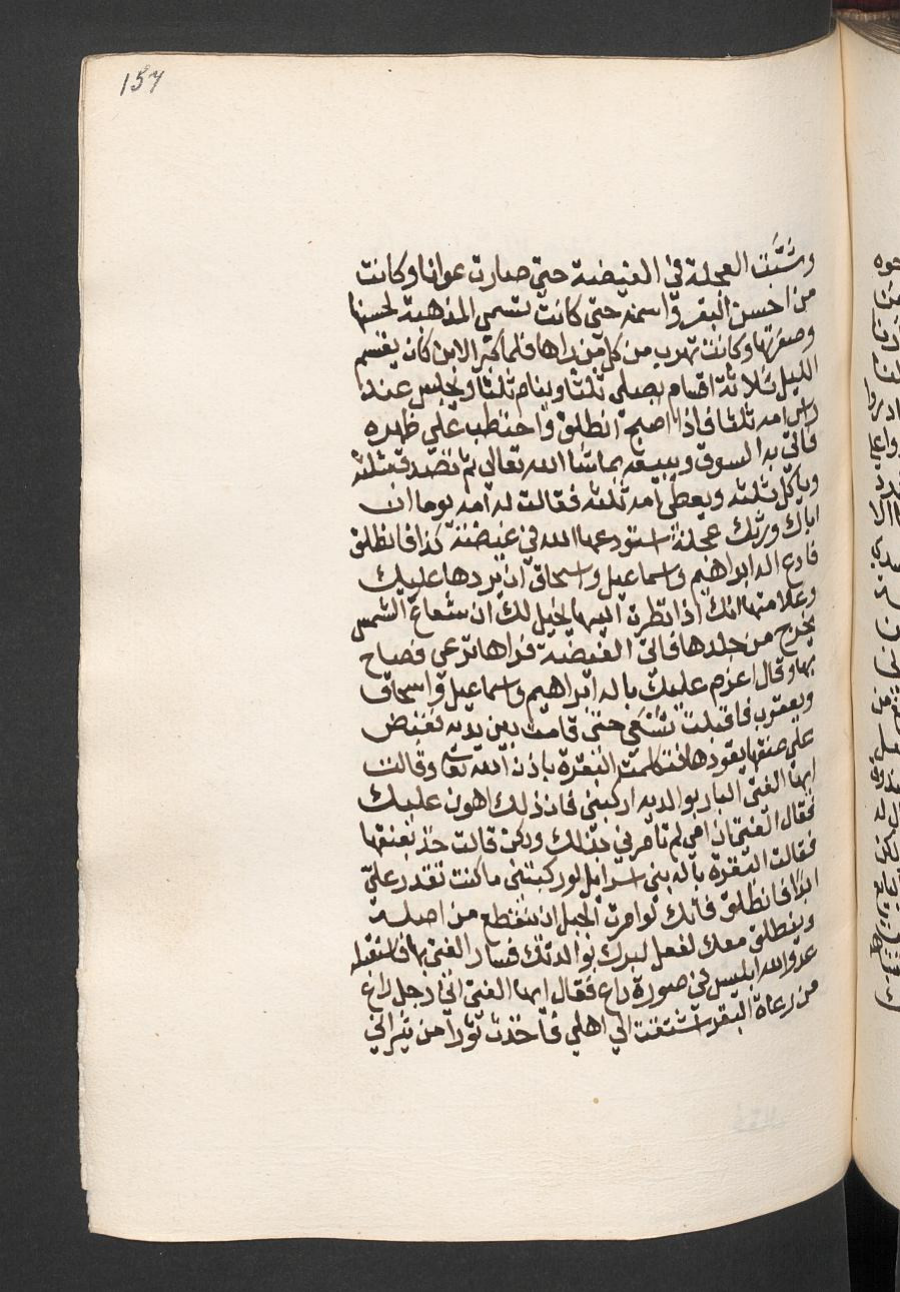 157
وشبّت العجلة في الغيضة حتى صارت عوانا وكانت
من احسن البقر واسمنه حتى كانت تسمى المذهبة لحسنها
وصفرتها وكانت تهرب من كل من راها فلما كبر الابن كان يقسم
الليل ثلاثة اقسام يصلى ثلثا وينام ثلثا ويجلس عند
راس امه ثلثا فاذا اصبح انطلق واحتطب على ظهره
فاتى به السوق ويبيعه بماشا الله تعالى ثم تصدق بثلثه
وياكل ثلثه ويعطى امه ثلثه فقالت له امه يوما ان
اباك ورثك عجلة استودعها الله في غيضة كذا فانطلق
فادع اله ابراهيم واسماعيل واسحاق ان يردها عليك
وعلامتها انك اذا نظرت اليها يخيل لك ان شعاع الشمس
يخرج من جلدها فاتى الغيضة فراها ترعى فصاح
بها وقال اعزم عليك باله ابراهيم واسماعيل واسحاق
ويعقوب فاقبلت تسعى حتى قامت بين يديه فقبض
على عنقها يقودها فتكلمت البقرة باذن الله تعا وقالت
ايها الفتى البار بوالديه اركبنى فان ذلك اهون عليك
فقال الفتى ان امي لم تامرني بذلك ولكن قالت خذ بعنقها
فقالت البقرة باله بنى اسرايل لو ركبتنى ما كنت تقدر على
ابدا فانطلق فانك لو امرت الجبل ان ينقطع من اصله
وينطلق معك لفعل لبرك بوالدتك فسار الفتى بها فاستقبله
عدو الله ابليس في صورة راع فقال ايها الفتى اني رجل راع
من رعاة البقر اشتقت الى اهلي فاخذت ثورا من ثيراني